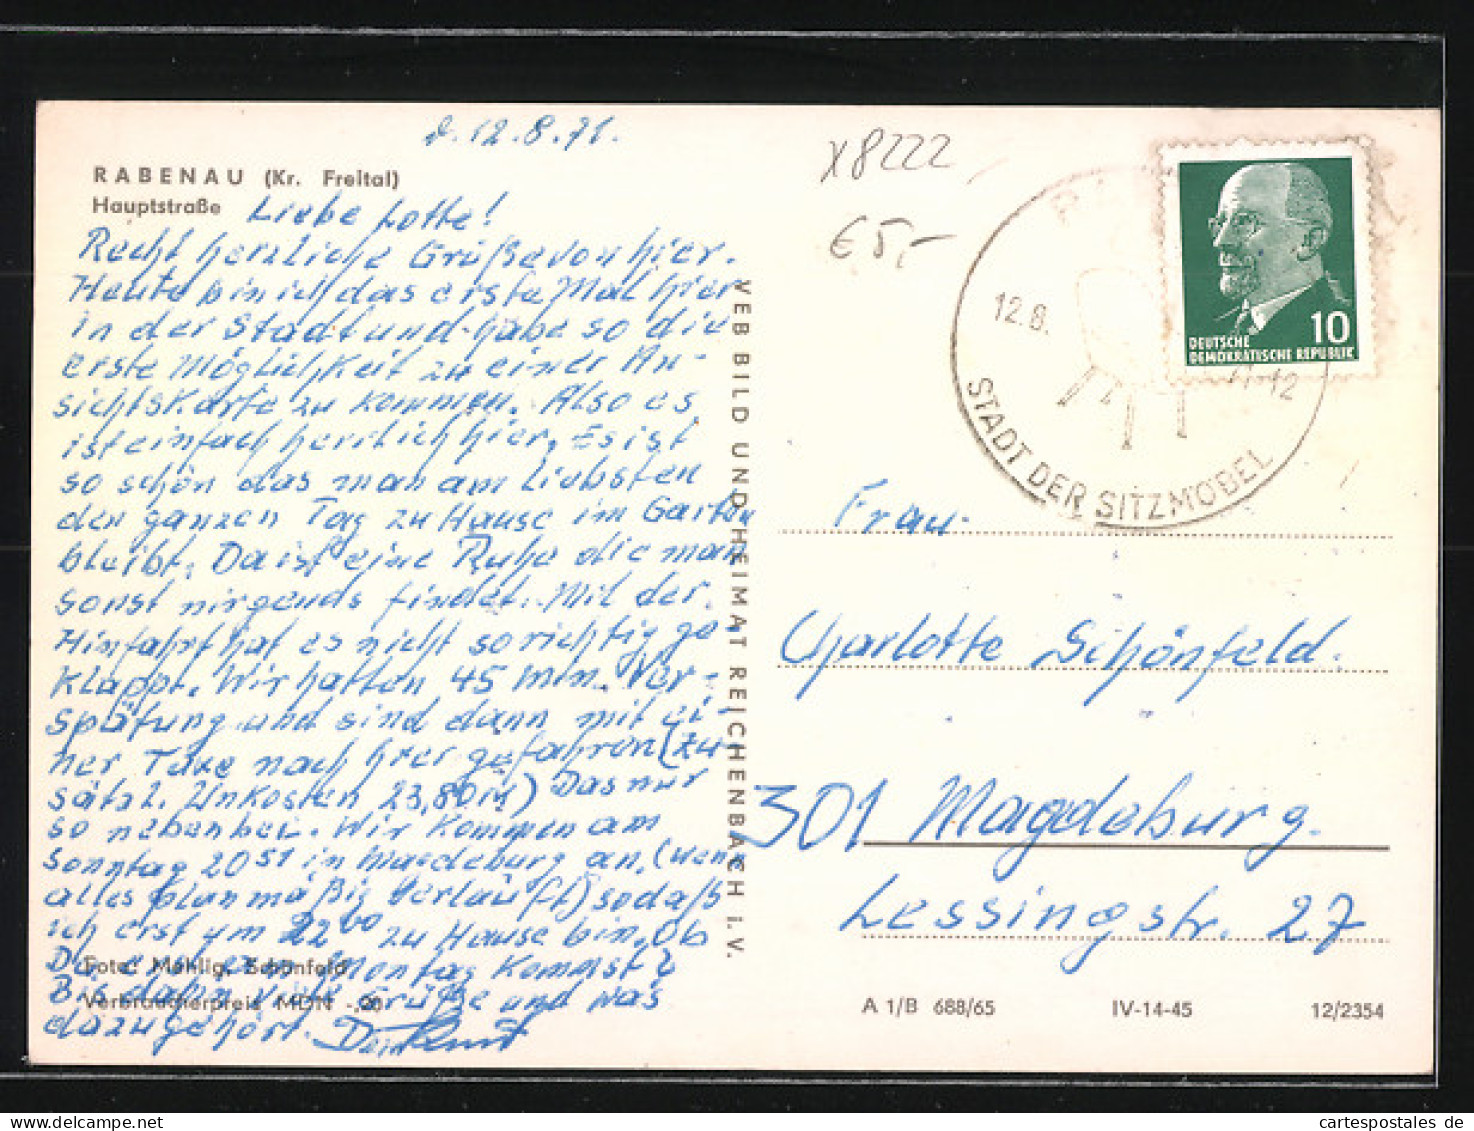 d. 12.8.71.
RABENAU (Kr. Freital)
Hauptstraße
Liebe Lotte!
Recht herzliche Grüße von hier.
Heute bin ich das erste Mal hier
in der Stadt und habe so die
erste Möglichkeit zu einer An-
sichtskarte zu kommen. Also es
ist einfach herrlich hier. Es ist
so schön das man am liebsten
den ganzen Tag zu Hause im Garten
bleibt. Da ist eine Ruhe die man
sonst nirgends findet. Mit der
Hinfahrt hat es nicht so richtig ge
klappt. Wir hatten 45 min. Ver-
spätung und sind dann mit ei-
ner Taxe nach hier gefahren (zu-
sätzl. Unkosten 23,80 M) Das nur
so nebenbei. Wir kommen am
Sonntag 20 51 in Magdeburg an. (wenn
alles planmäßig verläuft) sodaß
ich erst um 22 00 zu Hause bin. Ob
Du Montag kommst?
Bis dahin viele Grüße und was
dazugehört. Dein
Foto: Mehlig, Schönfeld
Verbraucherpreis MDN -,20
VEB BILD UND HEIMAT REICHENBACH i. V.
X8222
€ 5,-
12.8.
71-12
STADT DER SITZMÖBEL
10
DEUTSCHE
DEMOKRATISCHE REPUBLIK
Frau
Charlotte Schönfeld.
301 Magdeburg.
Lessingstr. 27
A 1/B 688/65
IV-14-45
12/2354
www.delcampe.net
cartespostales de